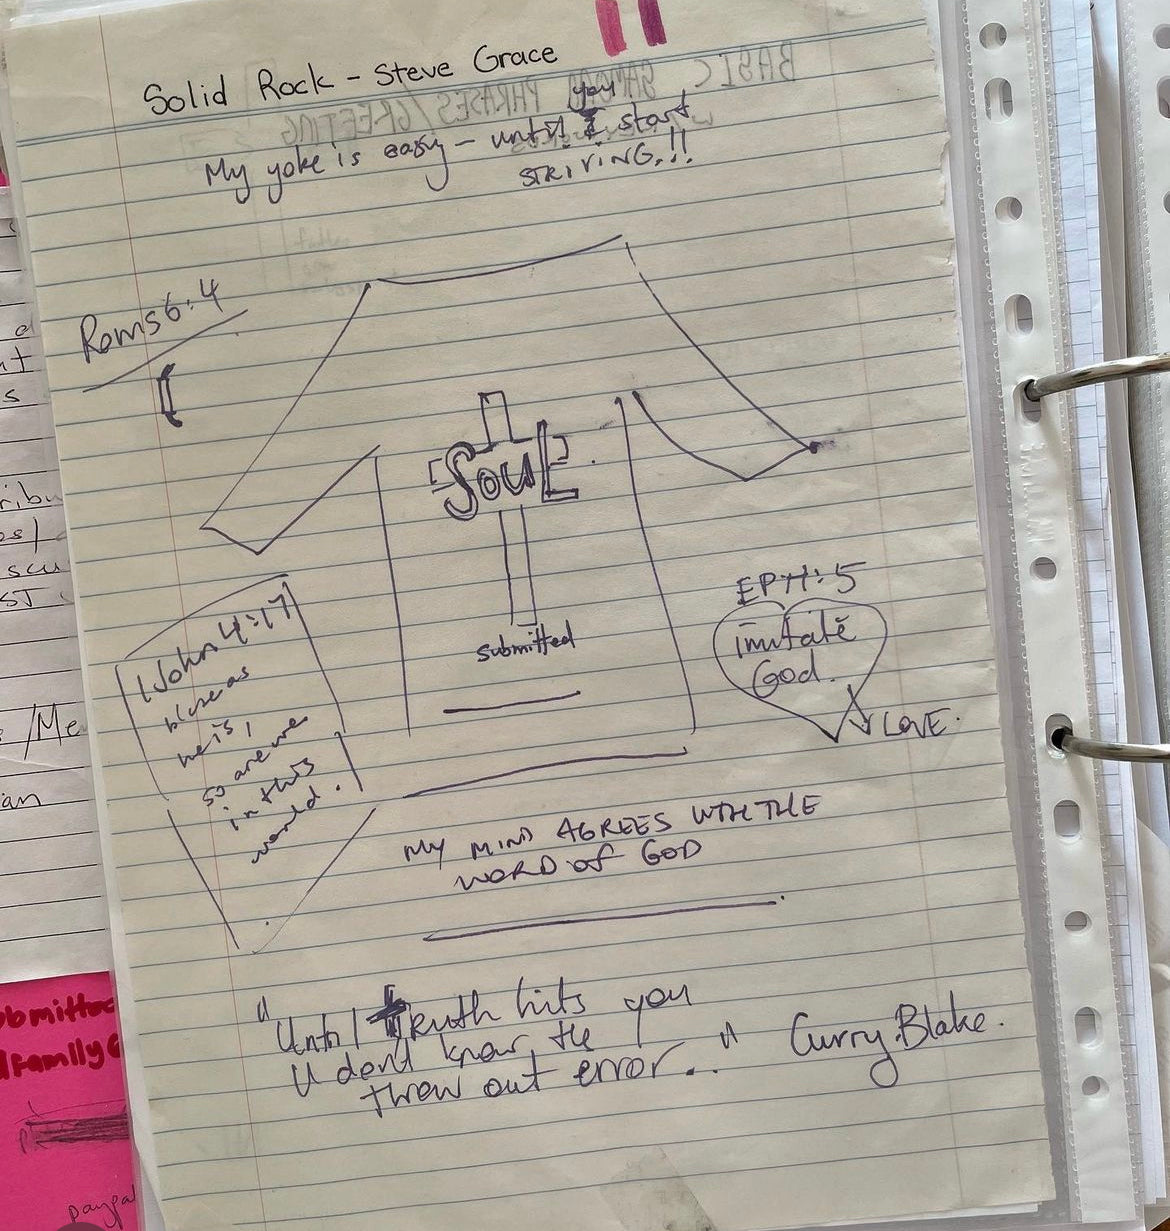 Solid Rock - Steve Grace
BASIC PHRASES/GREETING
My yoke is easy - until you start
STRIVING.!!
Roms 6:4
SOUL
submitted
EPH:5
imitate
God.
LOVE.
1 John 4:17
he is,
so are we
in this
world.
MY MIND AGREES WTH THE
WORD OF GOD
"Until Truth hits you
U dont know the
throw out error.." Curry.Blake.
ribu
os/
scu
ST
/Me
an
bmitted
family
paypal